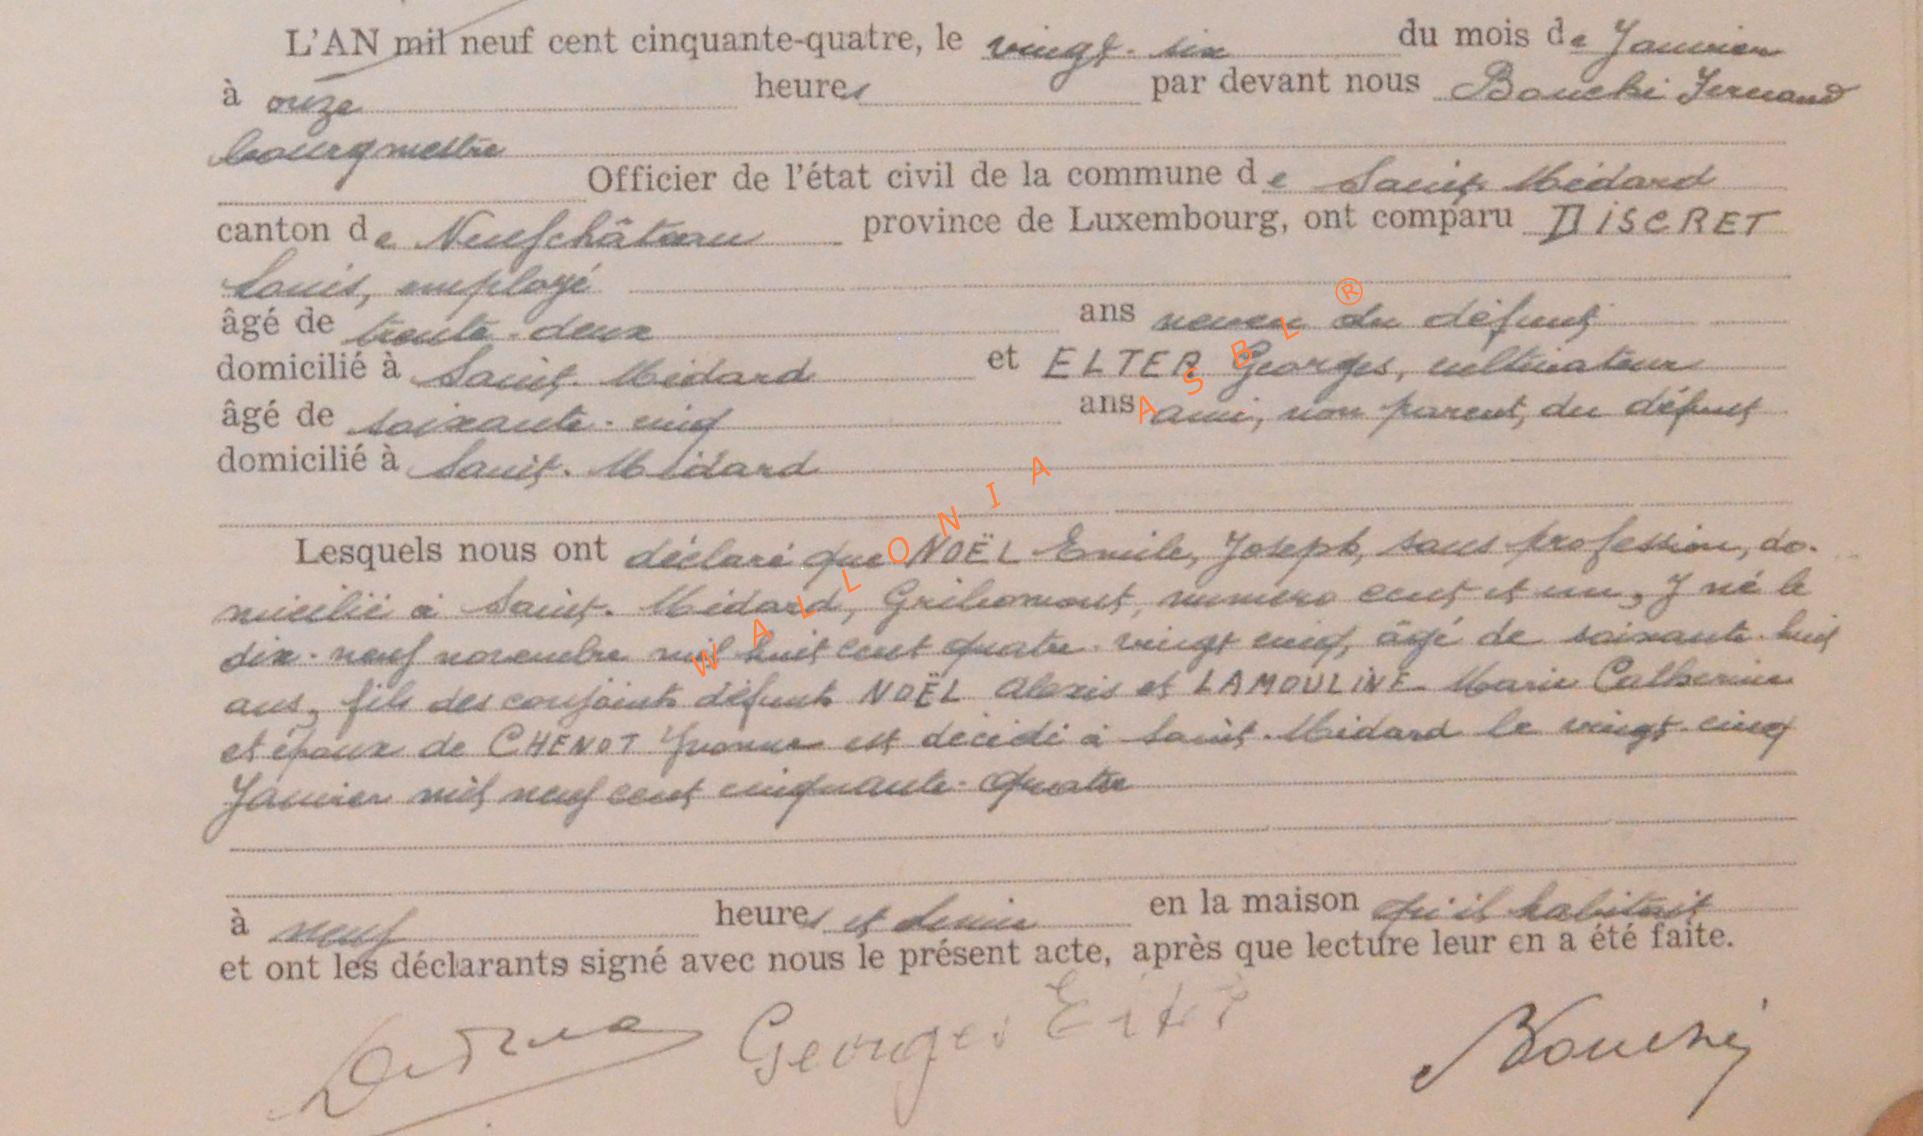 L'AN mil neuf cent cinquante-quatre, le vingt-six du mois de Janvier
à onze heures par devant nous Bouché Fernand
bourgmestre
Officier de l'état civil de la commune de Saint-Médard
canton de Neufchâteau province de Luxembourg, ont comparu DISCRET
Louis, employé
âgé de trente-deux ans neveu du défunt
domicilié à Saint-Médard et ELTER Georges, cultivateur
âgé de soixante-cinq ans ami, non parent, du défunt
domicilié à Saint-Médard
Lesquels nous ont déclaré que NOËL Emile, Joseph, sans profession, do-
micilié à Saint-Médard, Gribomont, numéro cent et un, y né le
dix-neuf novembre mil huit cent quatre-vingt cinq, âgé de soixante-huit
ans, fils des conjoints défunts NOËL Alexis et LAMOULINE Marie Catherine
et époux de CHENOT Yvonne est décédé à Saint-Médard le vingt-cinq
Janvier mil neuf cent cinquante-quatre
à neuf heures et demie en la maison qu'il habitait
et ont les déclarants signé avec nous le présent acte, après que lecture leur en a été faite.
Georges Elter Bouché
WALLONIA ASBL ®